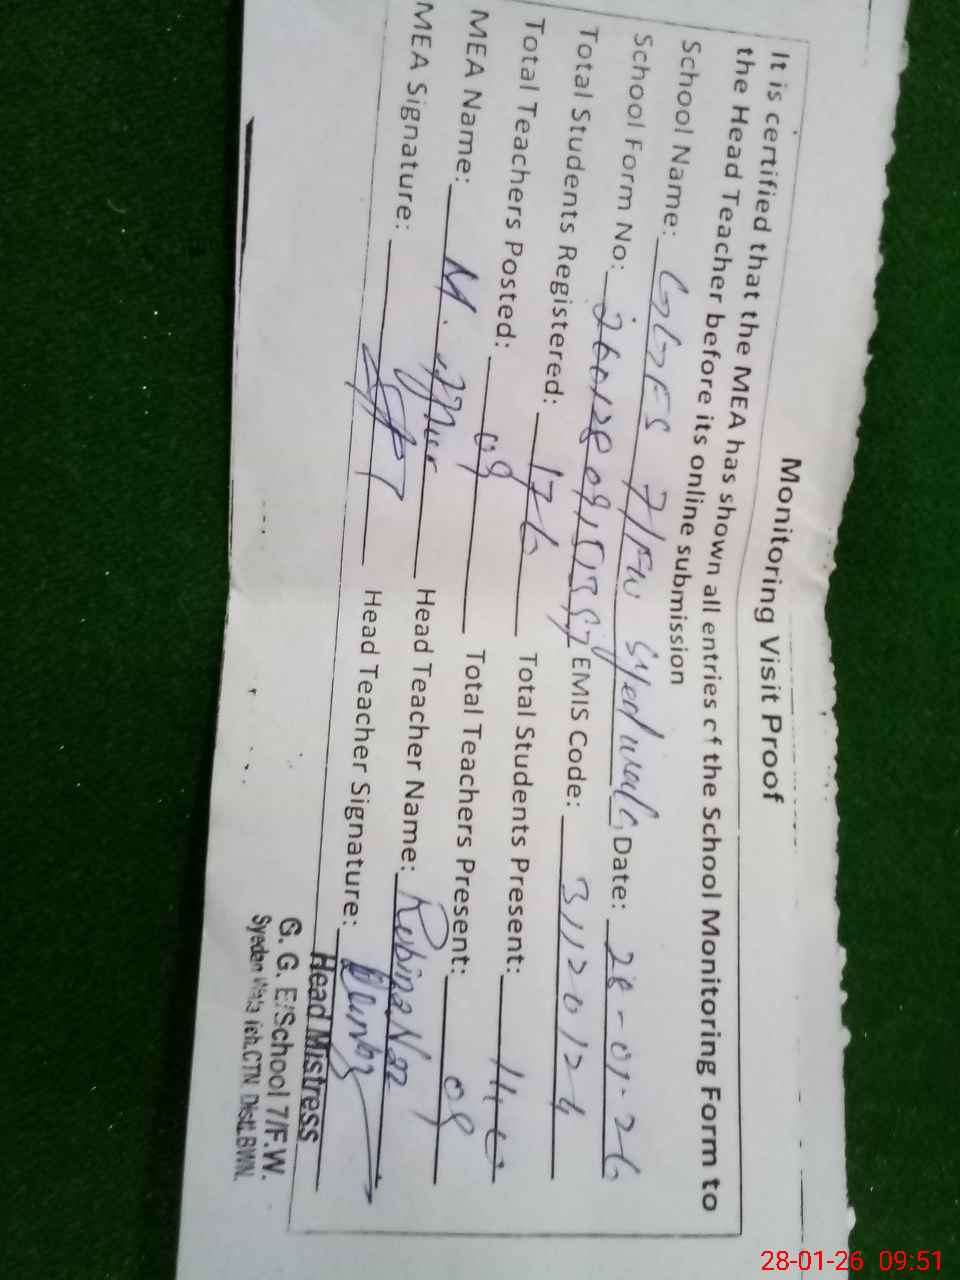 Monitoring Visit Proof
It is certified that the MEA has shown all entries of the School Monitoring Form to
the Head Teacher before its online submission
School Name: GGES 7/FW Syed wala Date: 28-01-26
School Form No: EMIS Code: 31120124
Total Students Registered: 176 Total Students Present:
Total Teachers Posted: 09 Total Teachers Present: 09
MEA Name: M. Head Teacher Name: Rubina Naz
MEA Signature: Head Teacher Signature:
Head Mistress
G. G. E/School 7/F.W.
Syedan Wala Teh.CTN. Distt.BWN.
28-01-26 09:51